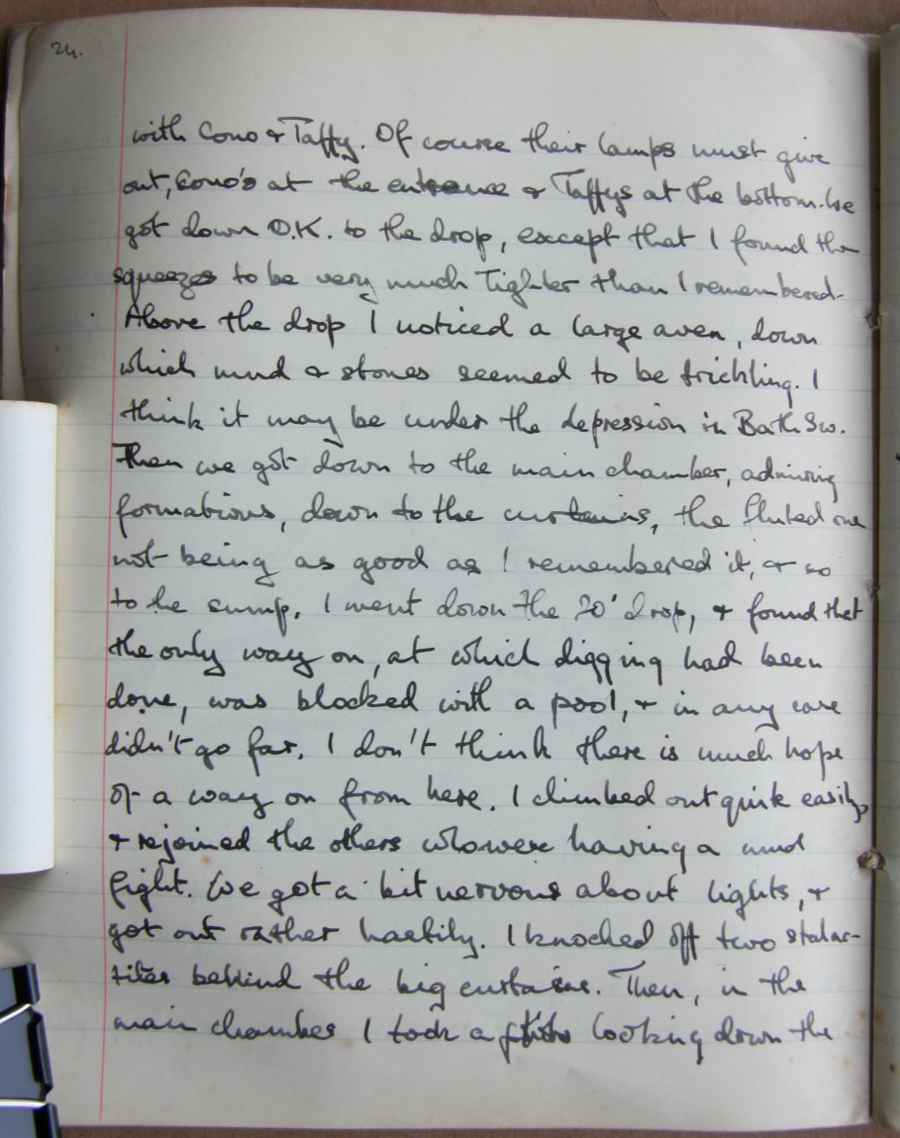 24.
with Cono & Taffy. Of course their lamps must give
out, Cono's at the entrance & Taffys at the bottom. We
got down O.K. to the drop, except that I found the
squeezes to be very much Tighter than I remembered.
Above the drop I noticed a large aven, down
which mud & stones seemed to be trickling. I
think it may be under the depression in Bath Sw.
Then we got down to the main chamber, admiring
formations, down to the curtains, the fluted one
not being as good as I remembered it, & so
to the sump. I went down the 20' drop, & found that
the only way on, at which digging had been
done, was blocked with a pool, & in any case
didn't go far. I don't think there is much hope
of a way on from here. I climbed out quite easily,
& rejoined the others who were having a mud
fight. We got a bit nervous about lights, &
got out rather hastily. I knocked off two stalac-
tites behind the big curtains. Then, in the
main chamber I took a photo looking down the